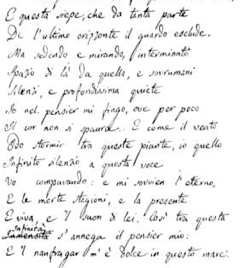 E questa siepe, che da tanta parte
De l'ultimo orizzonte il guardo esclude.
Ma sedendo e mirando, interminato
Spazio di là da quella, e sovrumani
Silenzi, e profondissima quiete
Io nel pensier mi fingo, ove per poco
Il cor non si spaura. E come il vento
Odo stormir tra queste piante, io quello
Infinito silenzio a questa voce
Vo comparando: e mi sovvien l'eterno,
E le morte stagioni, e la presente
E viva, e 'l suon di lei. Così tra questa
Infinità
Immensità s'annega il pensier mio:
E 'l naufragar m'è dolce in questo mare.